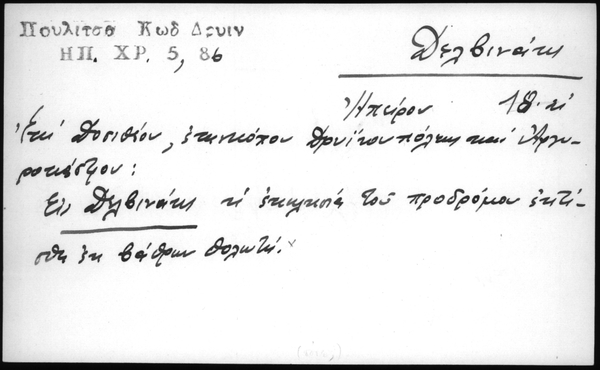 Πουλίτσα Κωδ Δρυιν
ΗΠ. ΧΡ. 5, 86
Δελβινάκι
Ἠπείρου 18. αἰ
Ἐπὶ Δοσιθέου, ἐπισκόπου Δρυϊνουπόλεως καὶ Ἀργυ-
ροκάστρου:
Εἰς Δελβινάκι ἡ ἐκκλησιά τοῦ προδρόμου ἐκτί-
σθη ἐκ βάθρων θολωτή.